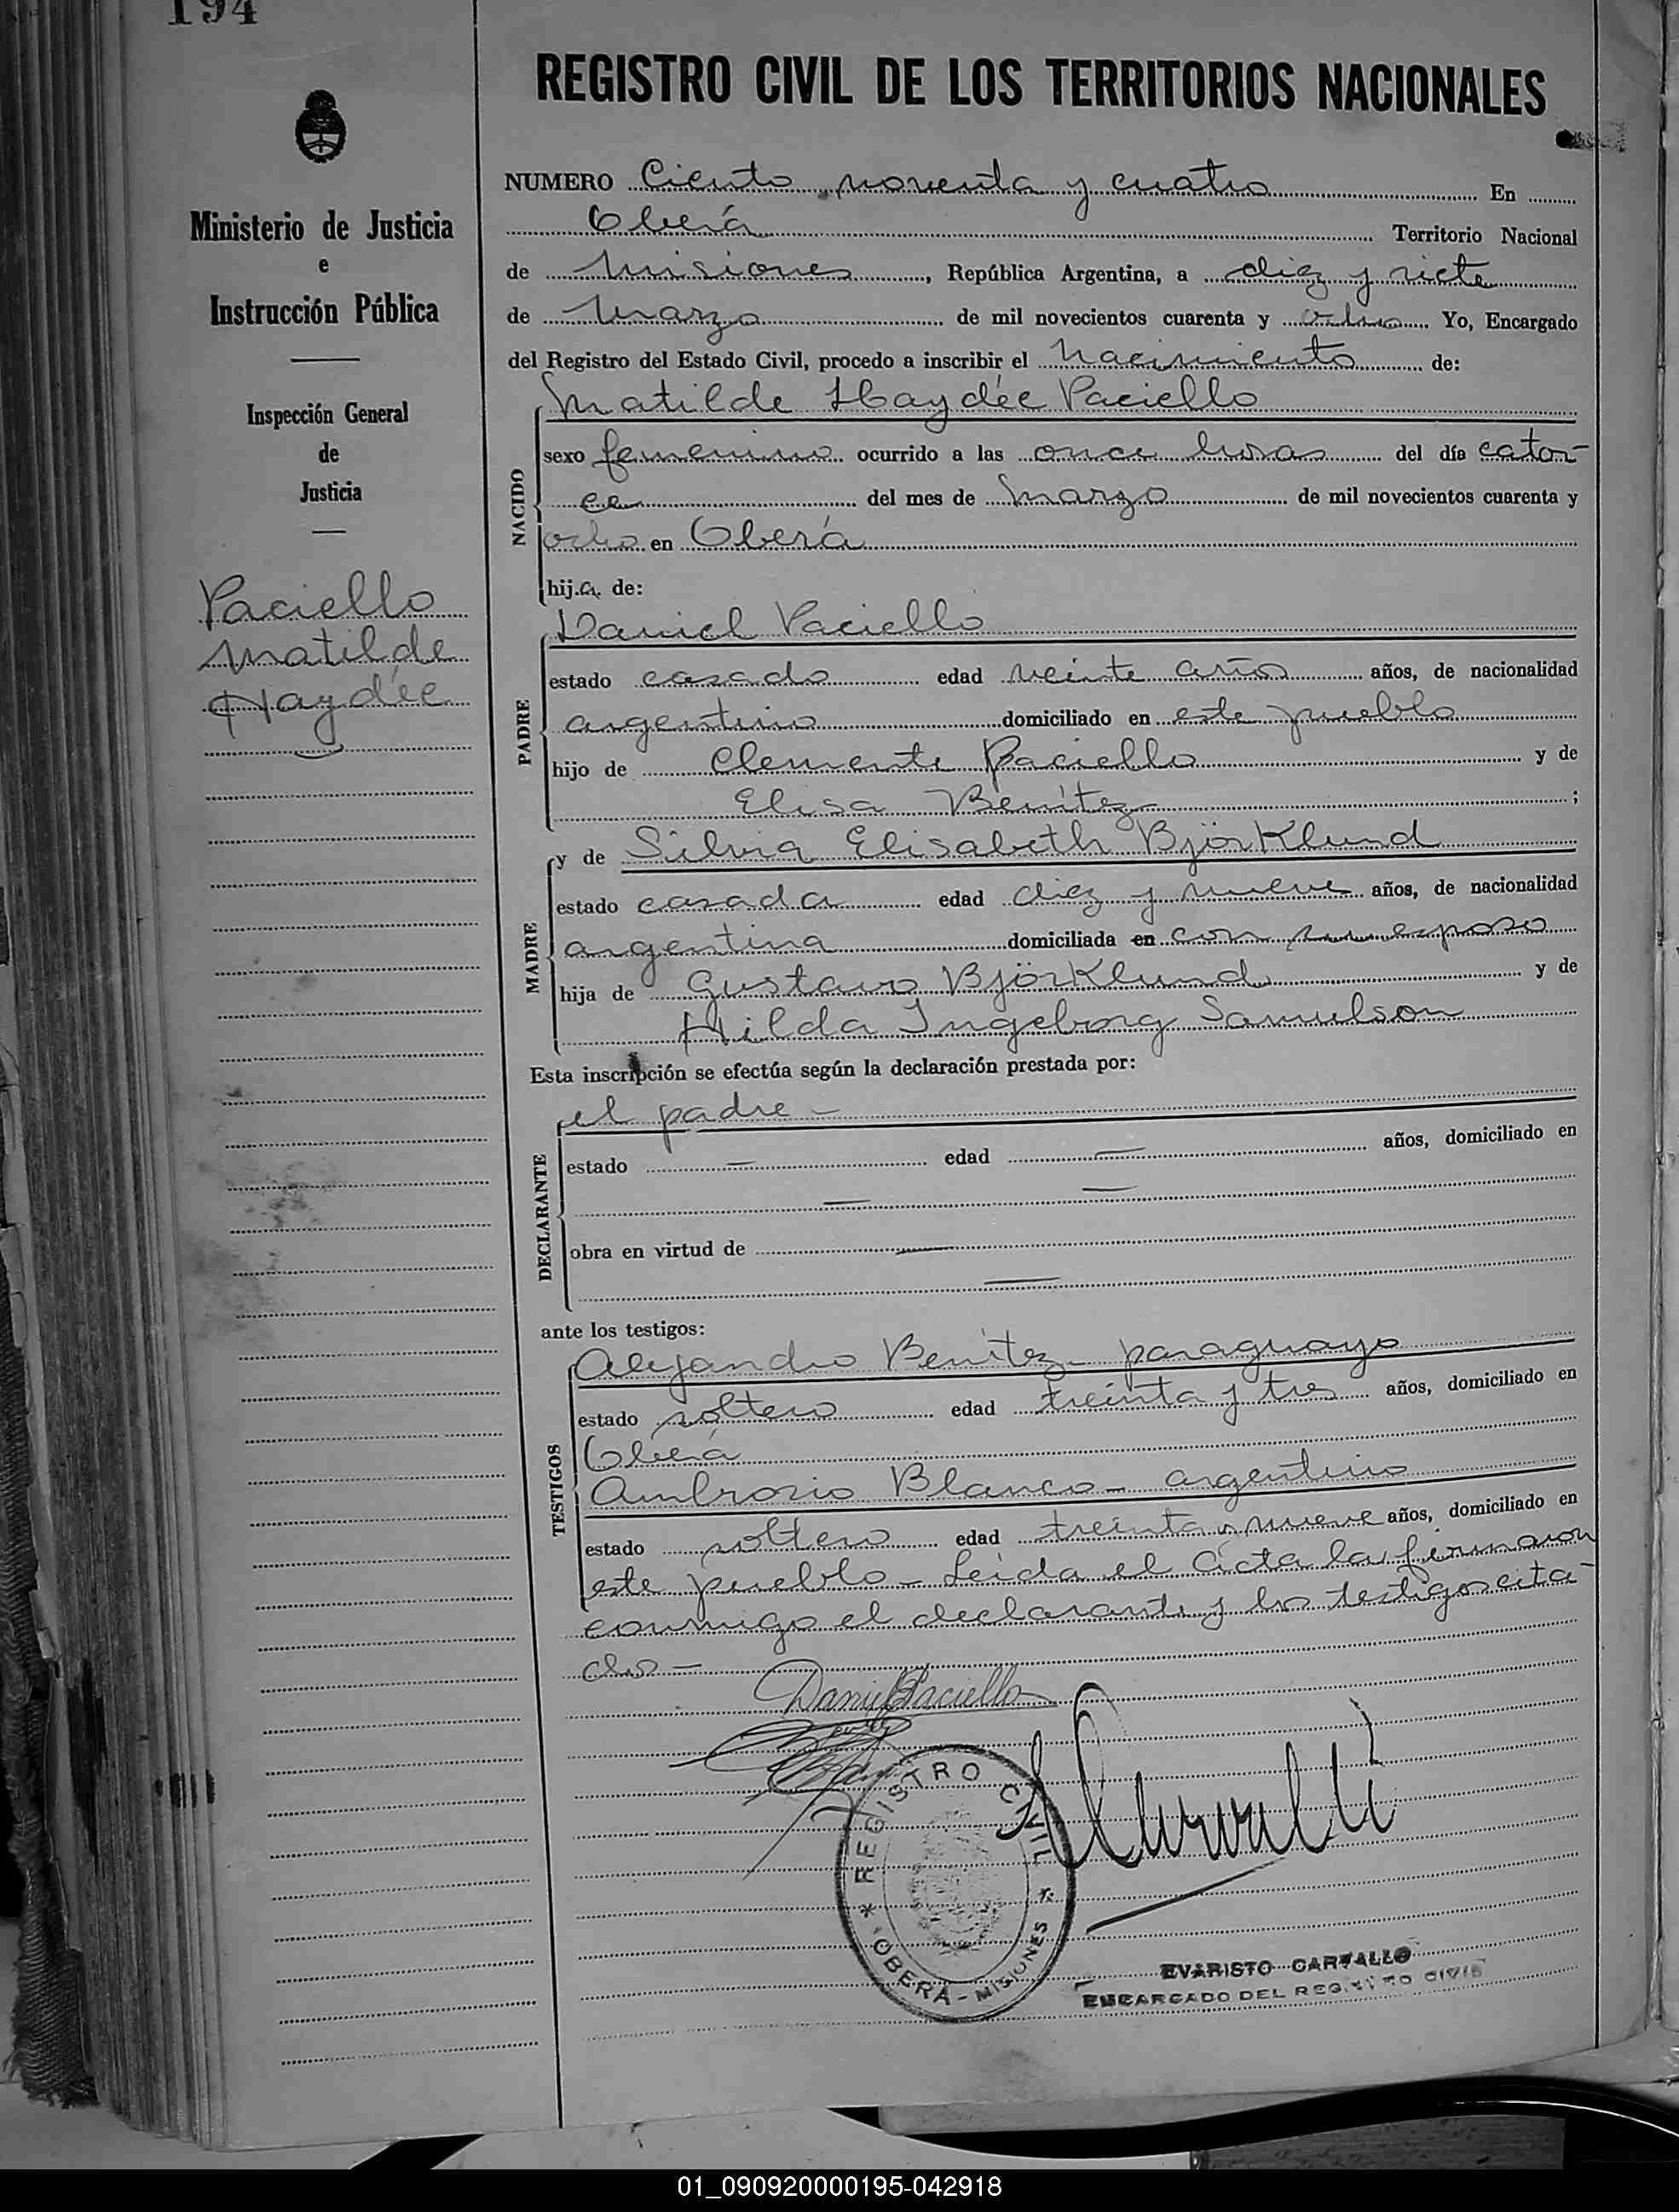 194
REGISTRO CIVIL DE LOS TERRITORIOS NACIONALES
Ministerio de Justicia
e
Instrucción Pública
Inspección General
de
Justicia
Paciello
Matilde
Haydée
NUMERO Ciento noventa y cuatro En
Oberá Territorio Nacional
de Misiones, República Argentina, a diez y siete
de Marzo de mil novecientos cuarenta y ocho Yo, Encargado
del Registro del Estado Civil, procedo a inscribir el Nacimiento de:
NACIDO
Matilde Haydée Paciello
sexo femenino ocurrido a las once horas del día cator-
ce del mes de Marzo de mil novecientos cuarenta y
ocho en Oberá
hija de:
PADRE
Daniel Paciello
estado casado edad veinte años años, de nacionalidad
argentino domiciliado en este pueblo
hijo de Clemente Paciello y de
Elisa Benítez ;
MADRE
y de Silvia Elisabeth Björklund
estado casada edad diez y nueve años, de nacionalidad
argentina domiciliada en con su esposo
hija de Gustavo Björklund y de
Hilda Ingeborg Samuelson
Esta inscripción se efectúa según la declaración prestada por:
DECLARANTE
el padre -
estado — edad — años, domiciliado en
— —
obra en virtud de —
—
ante los testigos:
TESTIGOS
Alejandro Benítez - paraguayo
estado soltero edad treinta y tres años, domiciliado en
Oberá
Ambrosio Blanco - argentino
estado soltero edad treinta y nueve años, domiciliado en
este pueblo - Leída el Acta la firmaron
conmigo el declarante y los testigos cita-
dos -
Daniel Paciello
REGISTRO CIVIL
OBERÁ - MISIONES
EVARISTO CARVALLO
ENCARGADO DEL REGISTRO CIVIL
01_090920000195-042918